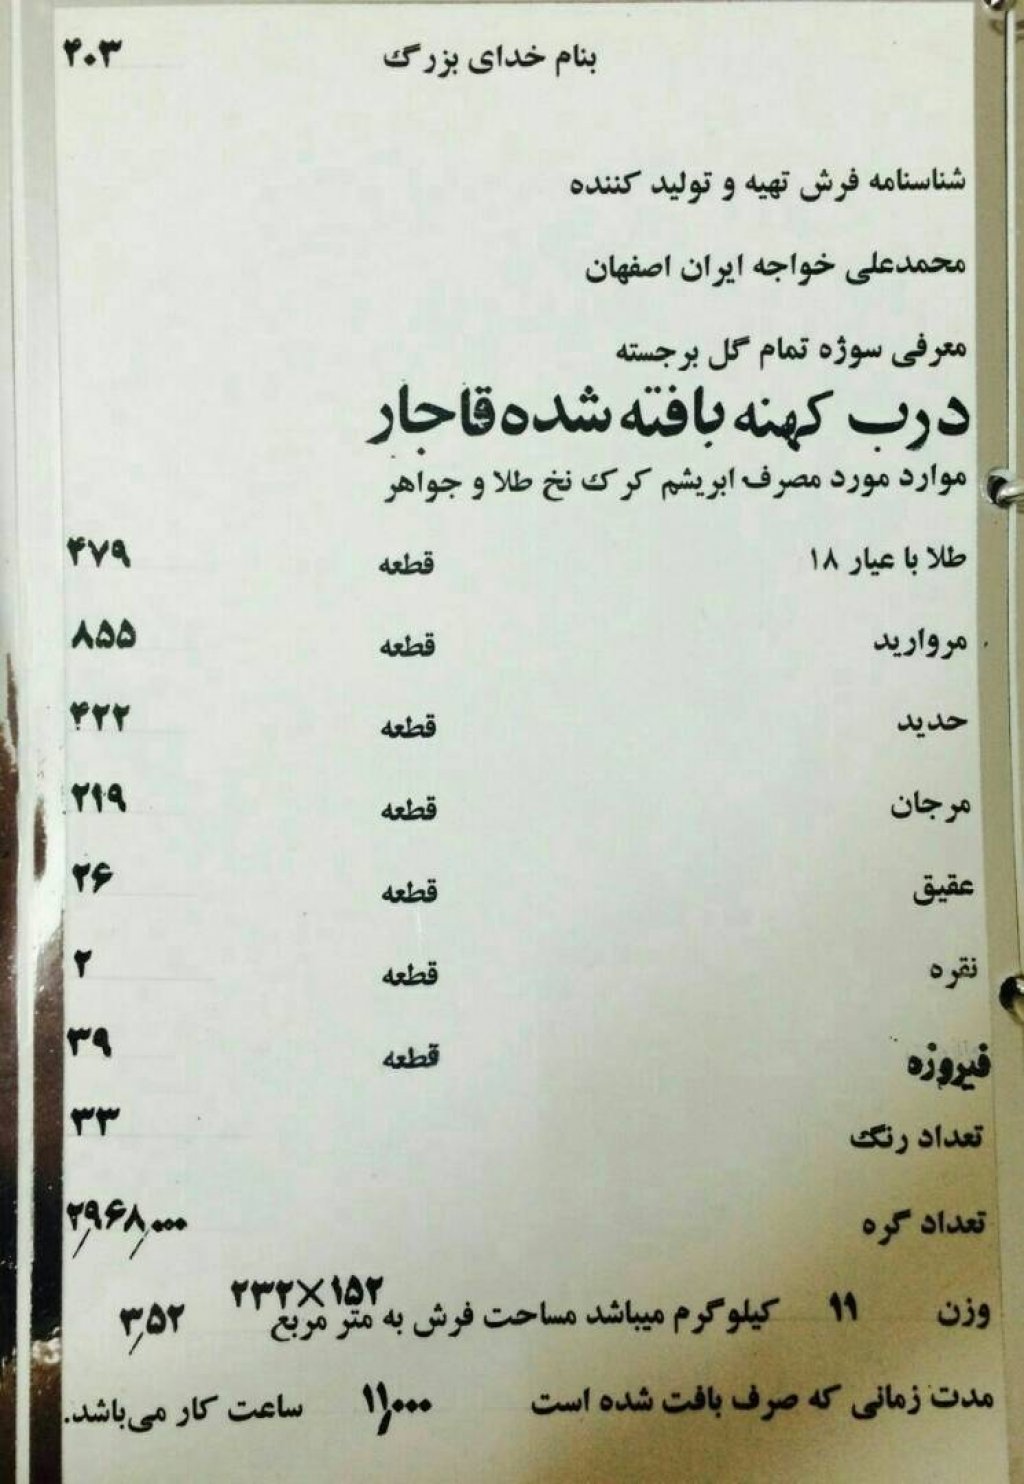 بنام خدای بزرگ ۴۰۳
شناسنامه فرش تهیه و تولید کننده
محمدعلی خواجه ایران اصفهان
معرفی سوژه تمام گل برجسته
درب کهنه بافته شده قاجار
موارد مورد مصرف ابریشم کرک نخ طلا و جواهر
طلا با عیار ۱۸ قطعه ۴۷۹
مروارید قطعه ۸۵۵
حدید قطعه ۴۲۲
مرجان قطعه ۲۱۹
عقیق قطعه ۲۶
نقره قطعه ۲
فیروزه قطعه ۳۹
تعداد رنگ ۳۳
تعداد گره ۲,۹۶۸,۰۰۰
وزن ۱۱ کیلوگرم میباشد مساحت فرش به متر مربع ۲۳۲×۱۵۲ ۳,۵۲
مدت زمانی که صرف بافت شده است ۱۱,۰۰۰ ساعت کار می‌باشد.